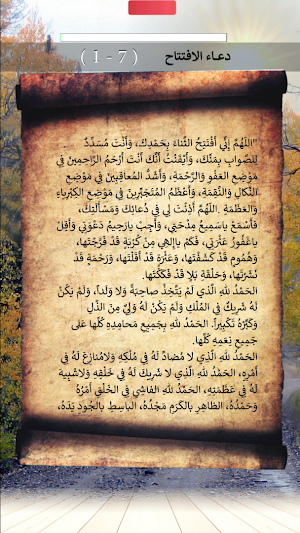 دعـاء الافتتاح
( 1 - 7 )
"اللهُمَّ إنّي أفْتَتِحُ الثَّناءَ بِحَمْدِكَ، وَأنْتَ مُسَدِّدٌ
لِلصَّوابِ بِمَنِّكَ، وَأيْقَنْتُ أنَّكَ أنْتَ أرْحَمُ الرّاحِمينَ في
مَوْضِعِ العَفْوِ وَالرَّحْمَةِ، وَأشَدُّ المُعاقِبينَ في مَوْضِعِ
النَّكالِ وَالنَّقِمَةِ، وَأعْظَمُ المُتَجَبِّرينَ في مَوْضِعِ الكِبْرِياءِ
وَالعَظَمَةِ .اللهُمَّ أذِنْتَ لي في دُعائِكَ وَمَسْألَتِكَ،
فَاسْمَعْ ياسَميعُ مِدْحَتي، وَأجِبْ يارَحيمُ دَعْوَتي وَأقِلْ
ياغَفُورُ عَثْرَتي، فَكَمْ ياإلهي مِنْ كُرْبَةٍ قَدْ فَرَّجْتَها،
وَهُمُومٍ قَدْ كَشَفْتَها، وَعَثْرَةٍ قَدْ أقَلْتَها، وَرَحْمَةٍ قَدْ
نَشَرْتَها، وَحَلْقَةِ بَلاٍ قَدْ فَكَكْتَها.
الحَمْدُ للهِ الَّذي لَمْ يَتَّخِذْ صاحِبَةً وَلا وَلَداً، وَلَمْ يَكُنْ
لَهُ شَريكٌ في المُلْكِ وَلَمْ يَكُنْ لَهُ وَلِيٌّ مِنَ الذُّلِّ
وَكَبِّرْهُ تَكْبيراً. الحَمْدُ للهِ بِجَميعِ مَحامِدِهِ كُلِّها عَلى
جَميعِ نِعَمِهِ كُلِّها.
الحَمْدُ للهِ الَّذي لا مُضادَّ لَهُ في مُلْكِهِ وَلامُنازِعَ لَهُ في
أمْرِهِ. الحَمْدُ للهِ الَّذي لا شَريكَ لَهُ في خَلْقِهِ وَلاشَبيهَ
لَهُ في عَظَمَتِهِ. الحَمْدُ للهِ الفاشي في الخَلْقِ أمْرُهُ
وَحَمْدُهُ، الظاهِرِ بِالكَرَمِ مَجْدُهُ، الباسِطِ بِالجُودِ يَدَهُ،